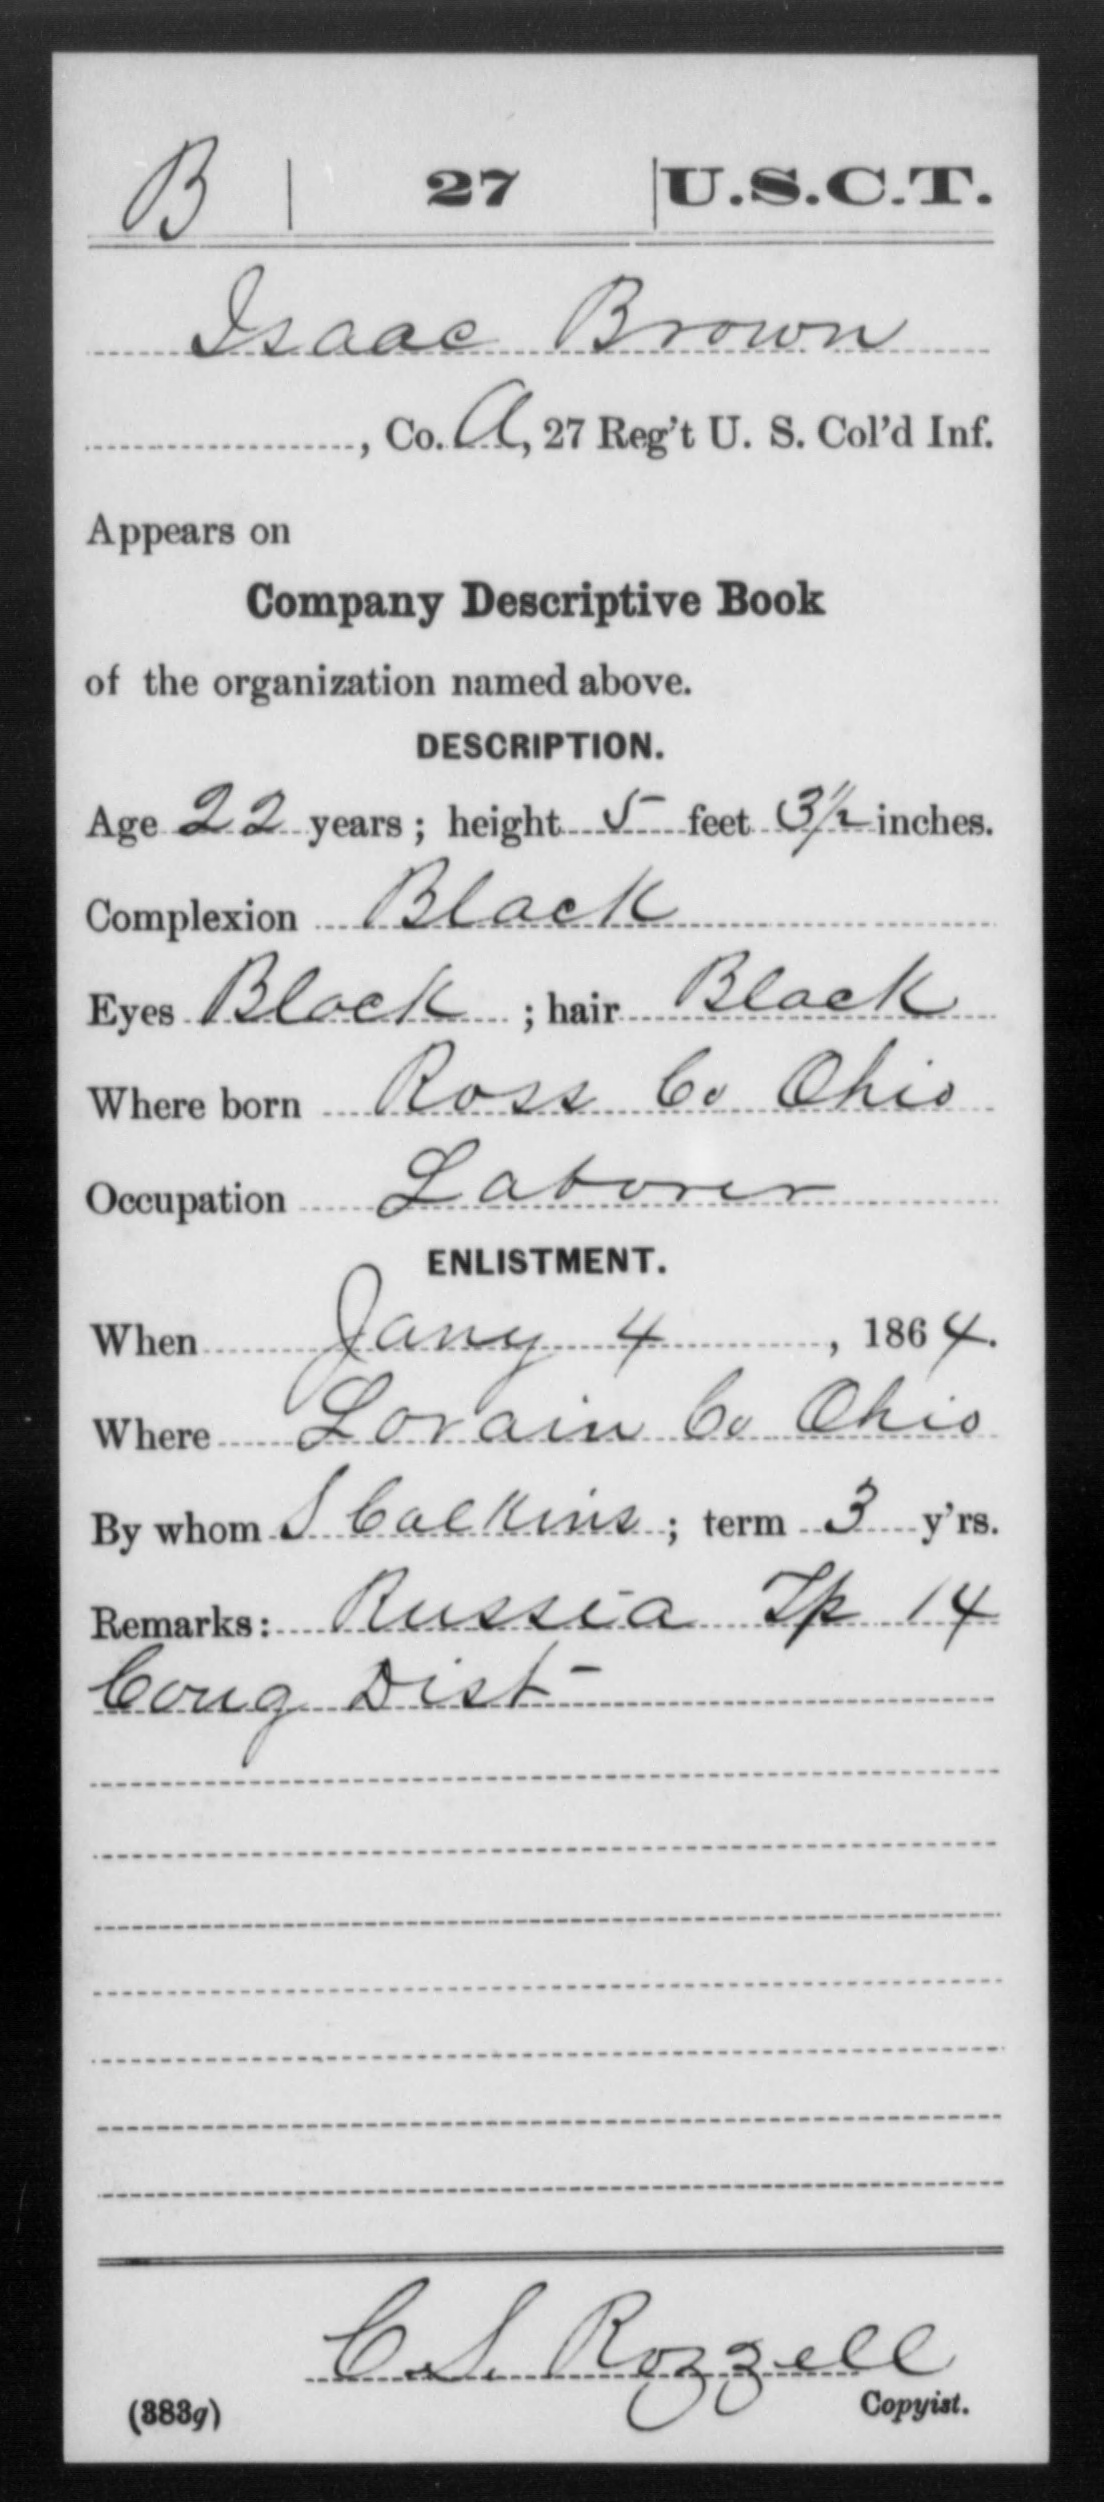 B | 27 | U.S.C.T.
Isaac Brown
, Co. A, 27 Reg't U. S. Col'd Inf.
Appears on
Company Descriptive Book
of the organization named above.
DESCRIPTION.
Age 22 years; height 5 feet 3½ inches.
Complexion Black
Eyes Black; hair Black
Where born Ross Co Ohio
Occupation Laborer
ENLISTMENT.
When Jany 4, 1864.
Where Lorain Co Ohio
By whom S Calkins; term 3 y'rs.
Remarks: Russia Tp 14
Cong Dist
C.S. Rozzell
(383g) Copyist.